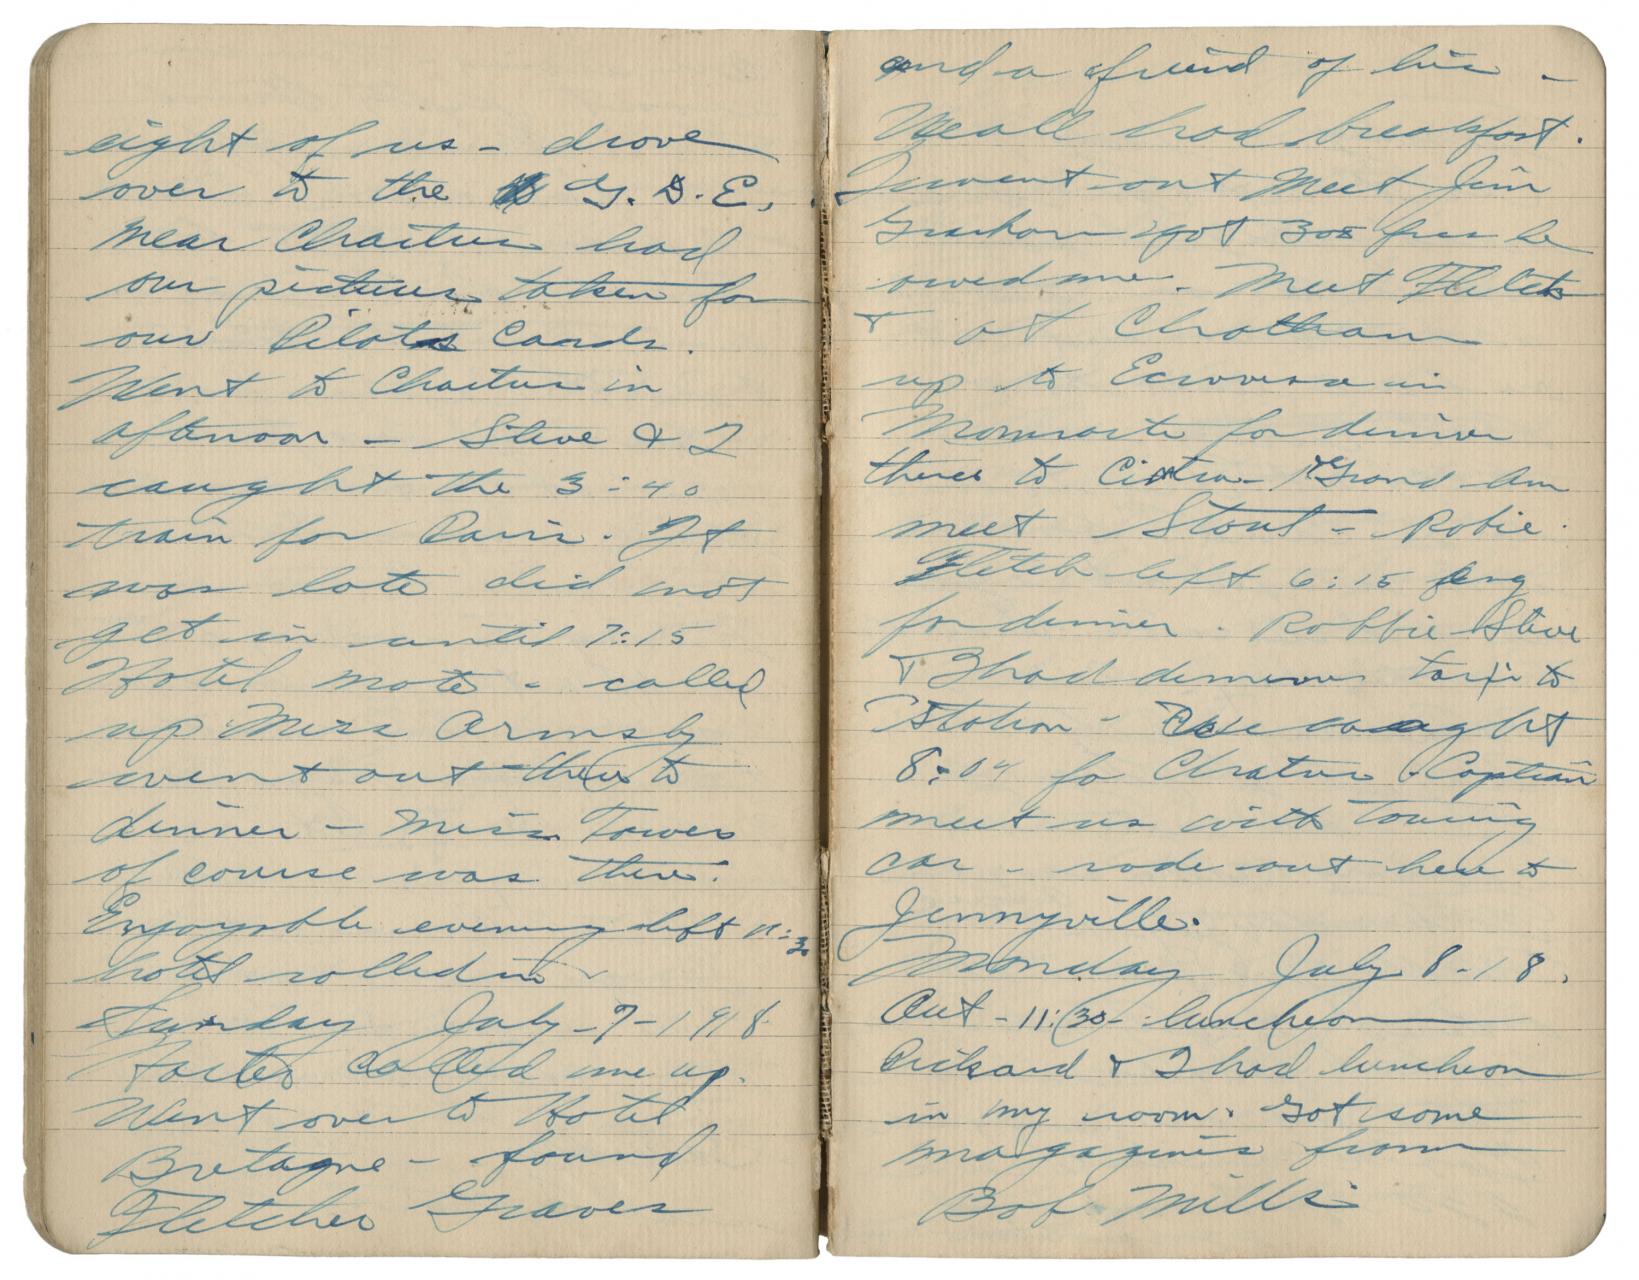 eight of us - drove
over to the G. D. E.
near Chartres had
our pictures taken for
our Pilots Cards.
Went to Chartres in
afternoon - Steve & I
caught the 3:40
train for Paris. It
was late did not
get in until 7:15
Hotel - called
up Miss Ormsby
went out there to
dinner - Miss Towers
of course was there.
Enjoyable evening left 11:30
hotel rolled in
Sunday July - 7 - 1918
Foster called me up.
Went over to Hotel
Bretagne - found
Fletcher Graves
and a friend of his -
We all had breakfast.
I went out meet Jim
Graham got 305 frcs he
owed me. Meet Fletch
& at Chatham
up to in
Monmarte for dinner
there to Cintra - & Grand Am
meet Stout - Robie.
Fletch left 6:15 eng
for dinner. Robbie Steve
& I had dinner taxi to
station - We caught
8:04 fo Chatres Captian
meet us with touring
car - rode out here to
Jennyville.
Monday July 8 - 18.
Out - 11:30 - luncheon
Rickard & I had luncheon
in my room. Got some
magazines from
Bob Mills